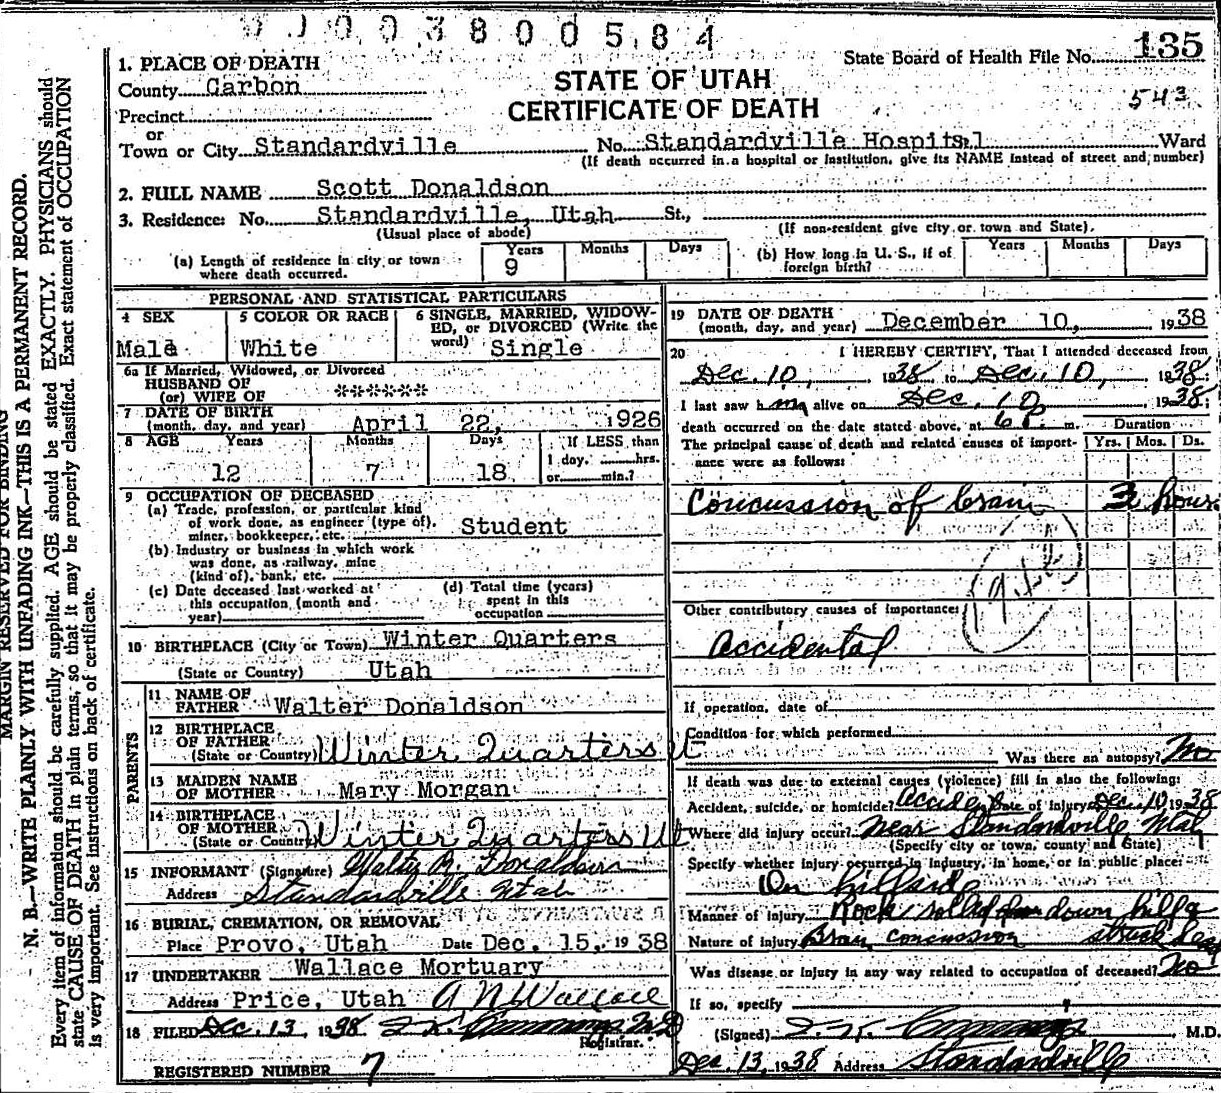 003800584
State Board of Health File No. 135
1. PLACE OF DEATH
STATE OF UTAH
County Carbon
CERTIFICATE OF DEATH
543
Precinct
or
Town or City Standardville No. Standardville Hospital Ward
(If death occurred in a hospital or institution, give its NAME instead of street and number)
2. FULL NAME Scott Donaldson
3. Residence: No. Standardville, Utah St.,
(Usual place of abode) (If non-resident give city or town and State).
(a) Length of residence in city or town where death occurred. Years 9 Months Days
(b) How long in U. S., if of foreign birth? Years Months Days
PERSONAL AND STATISTICAL PARTICULARS
4 SEX Male
5 COLOR OR RACE White
6 SINGLE, MARRIED, WIDOWED, or DIVORCED (Write the word) Single
6a If Married, Widowed, or Divorced
HUSBAND OF
(or) WIFE OF ******
7 DATE OF BIRTH
(month, day, and year) April 22, 1926
8 AGE Years 12 Months 7 Days 18
If LESS than
1 day, hrs.
or min.?
9 OCCUPATION OF DECEASED
(a) Trade, profession, or particular kind
of work done, as engineer (type of),
miner, bookkeeper, etc. Student
(b) Industry or business in which work
was done, as railway, mine
(kind of), bank, etc.
(c) Date deceased last worked at
this occupation (month and
year)
(d) Total time (years)
spent in this
occupation
10 BIRTHPLACE (City or Town) Winter Quarters
(State or Country) Utah
PARENTS
11 NAME OF
FATHER Walter Donaldson
12 BIRTHPLACE
OF FATHER
(State or Country) Winter Quarters Ut
13 MAIDEN NAME
OF MOTHER Mary Morgan
14 BIRTHPLACE
OF MOTHER
(State or Country) Winter Quarters Ut
15 INFORMANT (Signature) Walter R. Donaldson
Address Standardville Utah
16 BURIAL, CREMATION, OR REMOVAL
Place Provo, Utah Date Dec. 15, 1938
17 UNDERTAKER Wallace Mortuary
Address Price, Utah A N Wallace
18 FILED Dec. 13, 1938 M D
Registrar.
REGISTERED NUMBER 7
19 DATE OF DEATH
(month, day, and year) December 10, 1938
20 I HEREBY CERTIFY, That I attended deceased from
Dec. 10, 1938 to Dec. 10, 1938
I last saw him alive on Dec. 10 1938
death occurred on the date stated above, at 6 P. m.
The principal cause of death and related causes of importance were as follows:
Duration
Yrs. Mos. Ds.
Concussion of brain 3 hours
Other contributory causes of importance:
Accidental
If operation, date of
Condition for which performed
Was there an autopsy? No
If death was due to external causes (violence) fill in also the following:
Accident, suicide, or homicide? Accident Date of injury Dec. 10 1938
Where did injury occur? Near Standardville Utah
(Specify city or town, county and State)
Specify whether injury occurred in industry, in home, or in public place:
On hillside
Manner of injury Rock rolled down hill &
Nature of injury Brain concussion struck head
Was disease or injury in any way related to occupation of deceased? No
If so, specify
(Signed) M.D.
Dec. 13, 1938 Address Standardville
MARGIN RESERVED FOR BINDING
N. B.—WRITE PLAINLY WITH UNFADING INK—THIS IS A PERMANENT RECORD.
Every item of information should be carefully supplied. AGE should be stated EXACTLY. PHYSICIANS should
state CAUSE OF DEATH in plain terms, so that it may be properly classified. Exact statement of OCCUPATION
is very important. See instructions on back of certificate.